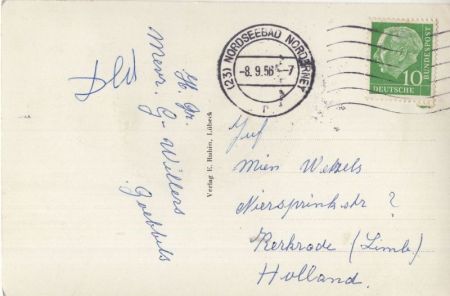 (23) NORDSEEBAD NORDERNEY
-8.9.56 -7
10
DEUTSCHE
BUNDESPOST
H. Gr.
Mevr. G. Willers
Goebbels
Verlag E. Rubin, Lübeck
Juf
Mien Wetzels
Niersprinkstr ?
Kerkrade (Limb)
Holland.